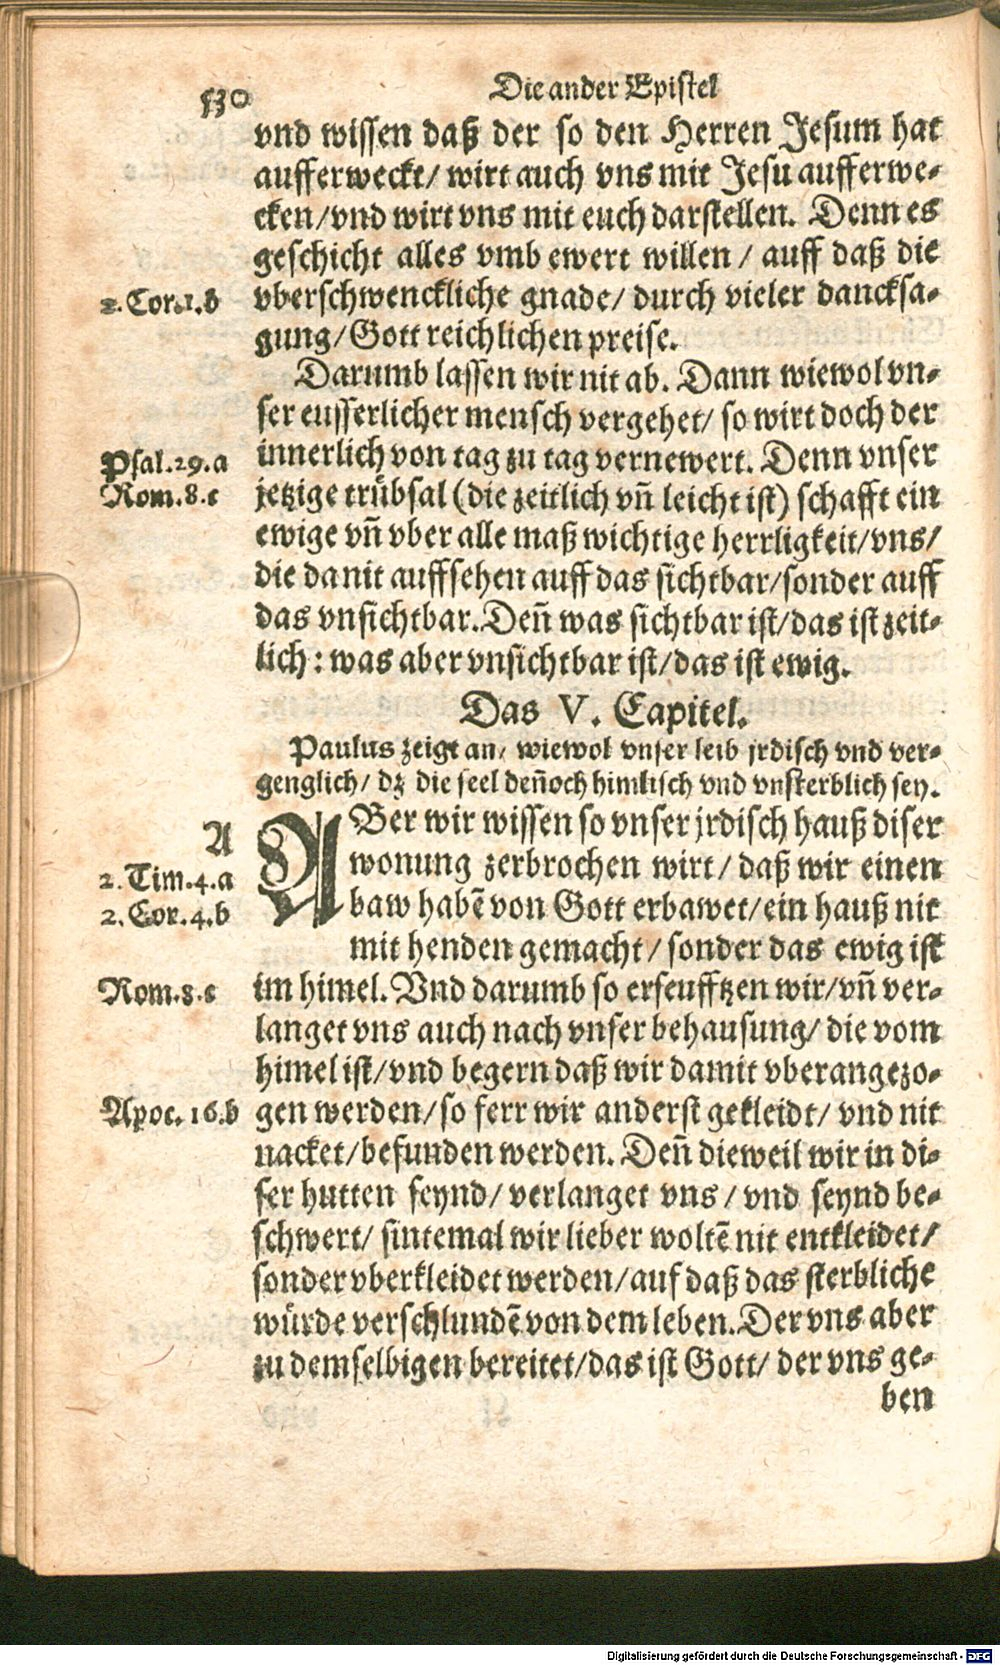 530
Die ander Epistel
vnd wissen daß der so den Herren Jesum hat
aufferweckt/ wirt auch vns mit Jesu aufferwe-
cken/vnd wirt vns mit euch darstellen. Denn es
geschicht alles vmb ewert willen/ auff daß die
2. Cor.1.b
vberschwenckliche gnade/ durch vieler dancksa-
gung/Gott reichlichen preise.
Darumb lassen wir nit ab. Dann wiewol vn-
ser eusserlicher mensch vergehet/ so wirt doch der
Psal.29.a
innerlich von tag zu tag vernewert. Denn vnser
Rom.8.c
jetzige trübsal (die zeitlich vn̄ leicht ist) schafft ein
ewige vn̄ vber alle maß wichtige herrligkeit/vns/
die da nit auffsehen auff das sichtbar/sonder auff
das vnsichtbar. Den̄ was sichtbar ist/das ist zeit-
lich: was aber vnsichtbar ist/das ist ewig.
Das V. Capitel.
Paulus zeigt an/ wiewol vnser leib jrdisch vnd ver-
genglich/ dz die seel den̄och himlisch vnd vnsterblich sey.
A
ABer wir wissen so vnser jrdisch hauß diser
2. Tim.4.a
wonung zerbrochen wirt/ daß wir einen
2. Cor.4.b
baw habē von Gott erbawet/ein hauß nit
mit henden gemacht/sonder das ewig ist
Rom.8.c
im himel. Vnd darumb so erseufftzen wir/vn̄ ver-
langet vns auch nach vnser behausung/ die vom
himel ist/vnd begern daß wir damit vberangezo-
Apoc. 16.b
gen werden/so ferr wir anderst gekleidt/ vnd nit
nacket/befunden werden. Den̄ dieweil wir in di-
ser hutten seynd/ verlanget vns/ vnd seynd be-
schwert/ sintemal wir lieber woltē nit entkleidet/
sonder vberkleidet werden/auf daß das sterbliche
würde verschlundē von dem leben. Der vns aber
zu demselbigen bereitet/das ist Gott/ der vns ge-
ben
Digitalisierung gefördert durch die Deutsche Forschungsgemeinschaft - DFG